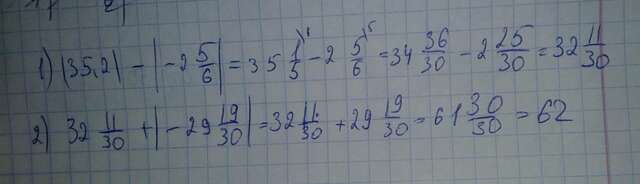 1) |35,2| - |-2 5/6| = 35 1/5 - 2 5/6 = 34 36/30 - 2 25/30 = 32 11/30
2) 32 11/30 + |-29 19/30| = 32 11/30 + 29 19/30 = 61 30/30 = 62